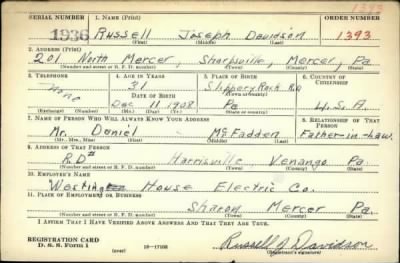 1393
SERIAL NUMBER 1. NAME (Print) ORDER NUMBER
1936 Russell Joseph Davidson 1393
(First) (Middle) (Last)
2. ADDRESS (Print)
201 North Mercer, Sharpsville, Mercer, Pa
(Number and street or R. F. D. number) (Town) (County) (State)
3. TELEPHONE 4. AGE IN YEARS 5. PLACE OF BIRTH 6. COUNTRY OF CITIZENSHIP
None 31 Slippery Rock R.D
DATE OF BIRTH (Town or county)
Dec 11 1908 Pa U.S.A.
(Exchange) (Number) (Mo.) (Day) (Yr.) (State or country)
7. NAME OF PERSON WHO WILL ALWAYS KNOW YOUR ADDRESS 8. RELATIONSHIP OF THAT PERSON
Mr. Daniel McFadden Father-in-Law.
(Mr., Mrs., Miss) (First) (Middle) (Last)
9. ADDRESS OF THAT PERSON
R.D# Harrisville Venango Pa.
(Number and street or R. F. D. number) (Town) (County) (State)
10. EMPLOYER'S NAME
Westing House Electric Co.
11. PLACE OF EMPLOYMENT OR BUSINESS
Sharon Mercer Pa.
(Number and street or R. F. D. number) (Town) (County) (State)
I AFFIRM THAT I HAVE VERIFIED ABOVE ANSWERS AND THAT THEY ARE TRUE.
REGISTRATION CARD
D. S. S. Form 1 (over) 16—17105
Russell J Davidson
(Registrant's signature)